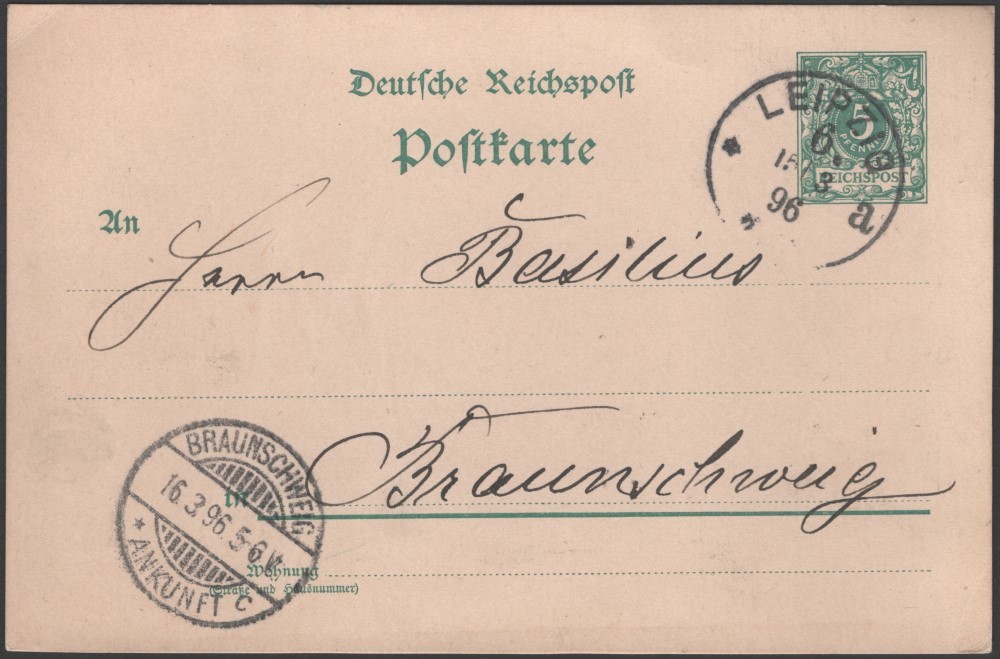 Deutsche Reichspost
Postkarte
LEIPZIG
6.
96
a
5
PFENNIG
REICHSPOST
An
Herrn Basilius
in Braunschweig
Wohnung
(Straße und Hausnummer)
BRAUNSCHWEIG
16.3.96 5-6V.
* ANKUNFT c